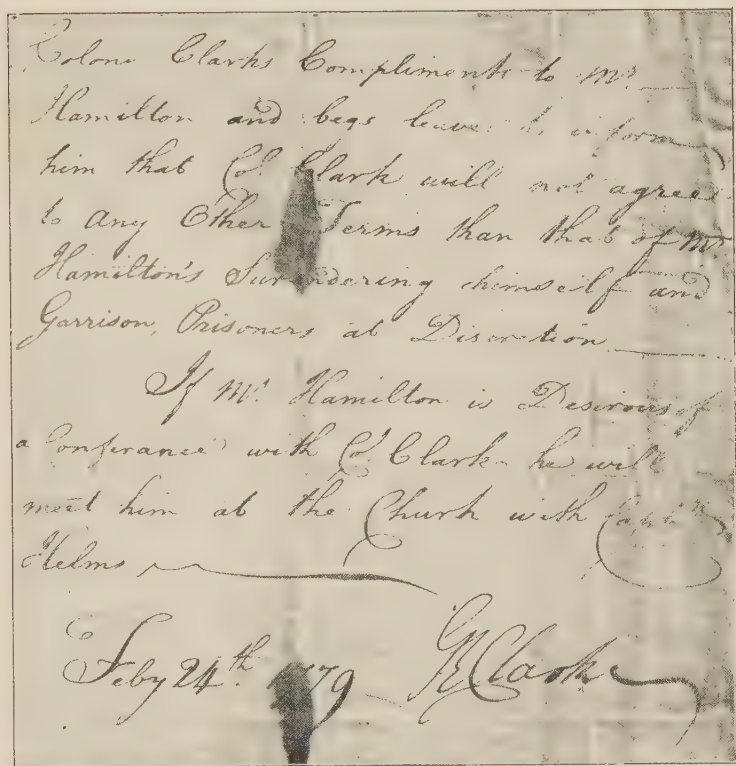 Colonl Clarks Compliments to Mr.
Hamilton and begs leave to inform
him that Col. Clark will not agree
to any Other Terms than that of Mr.
Hamilton's Surendering himself and
Garrison, Prisoners at Discretion
If Mr. Hamilton is Desirous of
a Conferance with Col. Clark he will
meet him at the Church with Captn.
Helms
Feby 24th 1779 GR Clark